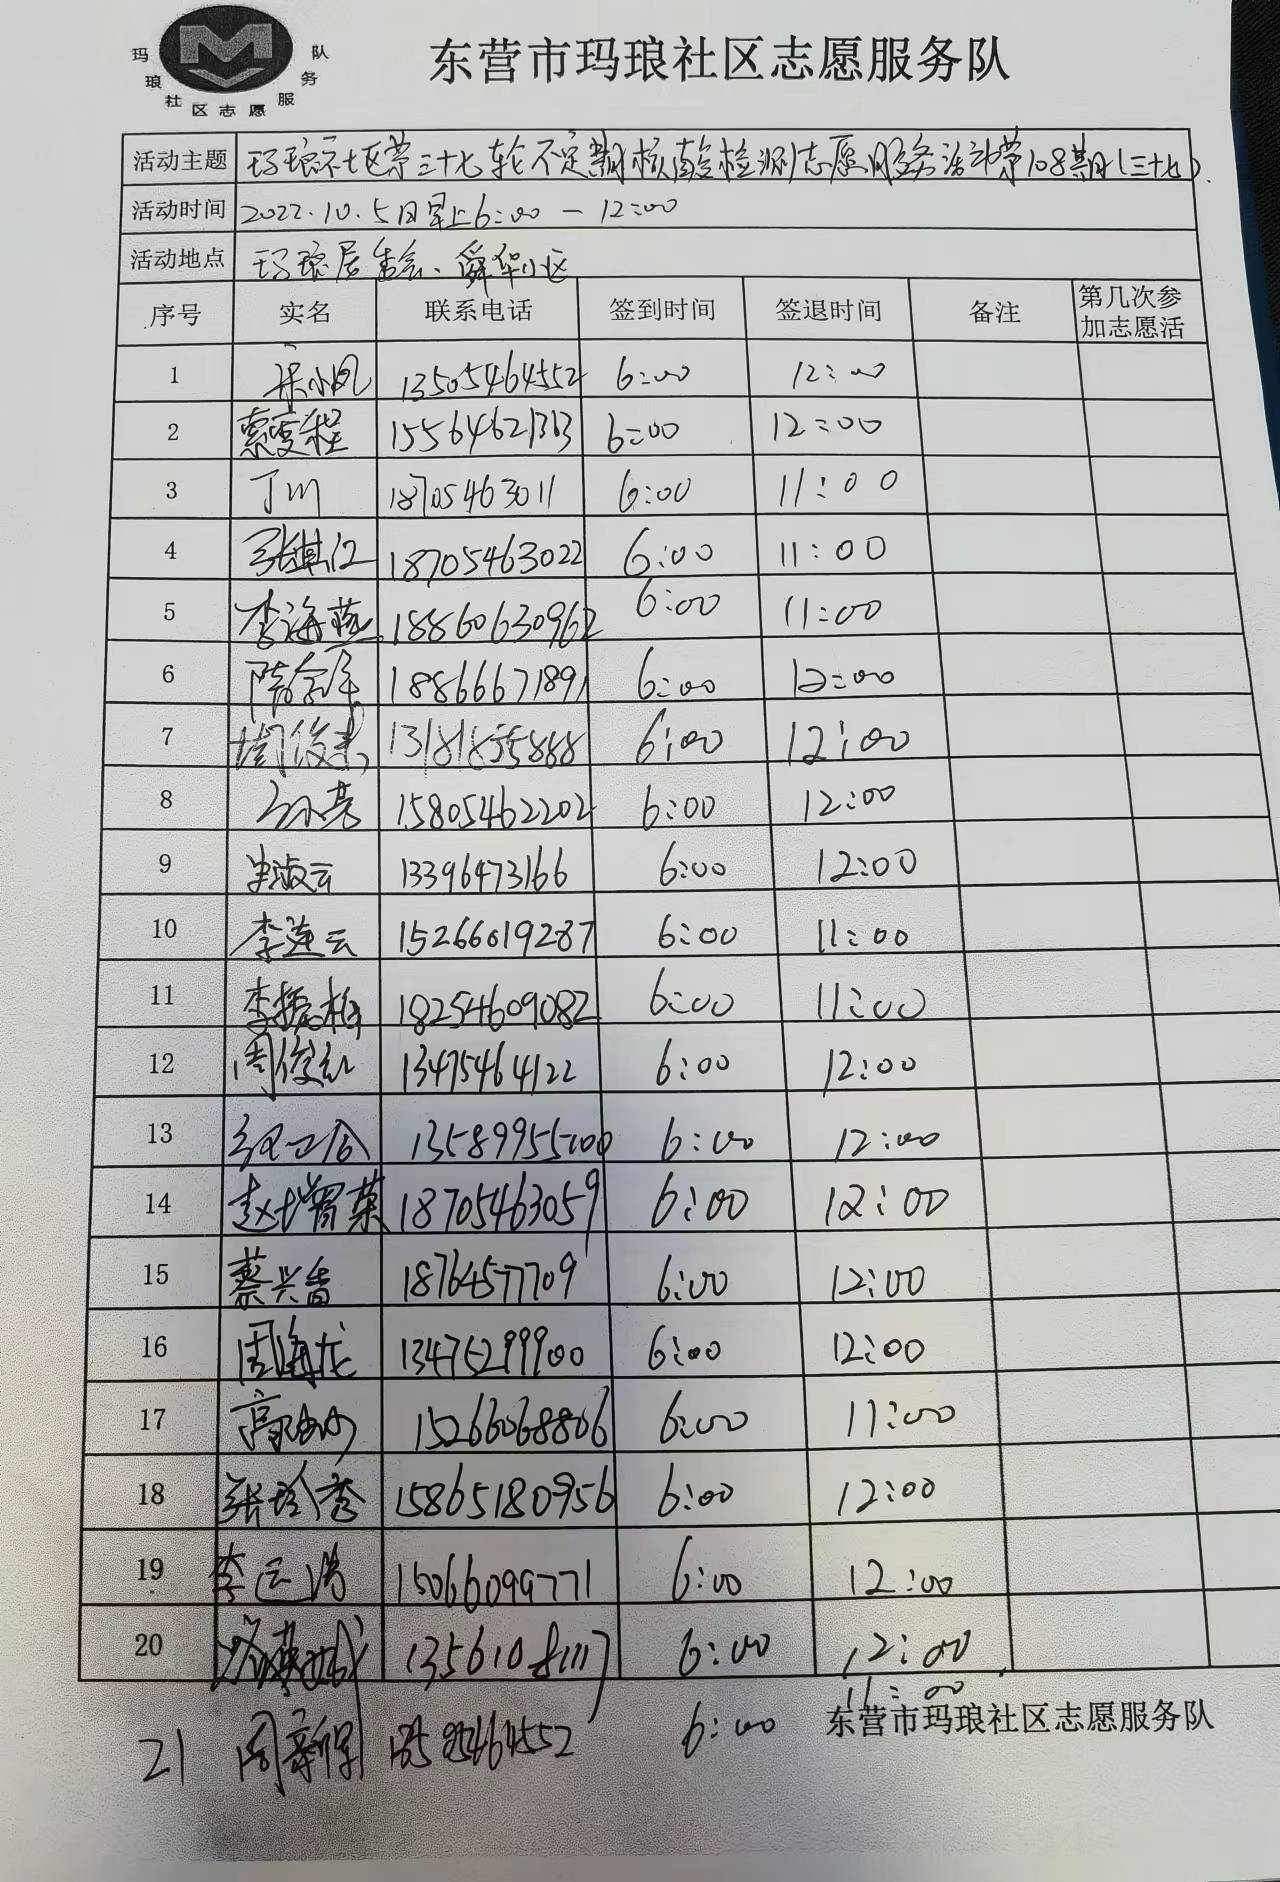 玛琅社区志愿服务队
东营市玛琅社区志愿服务队
活动主题 玛琅社区第三十七轮不定期核酸检测志愿服务活动第108期(三十七).
活动时间 2022.10.5日早上6:00 — 12:00
活动地点 玛琅居委会、舜华小区
序号 实名 联系电话 签到时间 签退时间 备注 第几次参加志愿活
1 13505464552 6:00 12:00
2 15564621313 6:00 12:00
3 丁川 18705463011 6:00 11:00
4 18705463022 6:00 11:00
5 李海燕 18860630962 6:00 11:00
6 18866671891 6:00 12:00
7 13181855888 6:00 12:00
8 15805462202 6:00 12:00
9 13396473166 6:00 12:00
10 李莲云 15266019287 6:00 11:00
11 李振梅 18254609082 6:00 11:00
12 周俊红 13475464122 6:00 12:00
13 6:00 12:00
14 赵增菊 18705463059 6:00 12:00
15 蔡兴香 18764577709 6:00 12:00
16 周海龙 13475299900 6:00 12:00
17 15266068806 6:00 11:00
18 张玲秀 15865180956 6:00 12:00
19 李运涛 15066099771 6:00 12:00
20 6:00 12:00
21 6:00 11:00
东营市玛琅社区志愿服务队